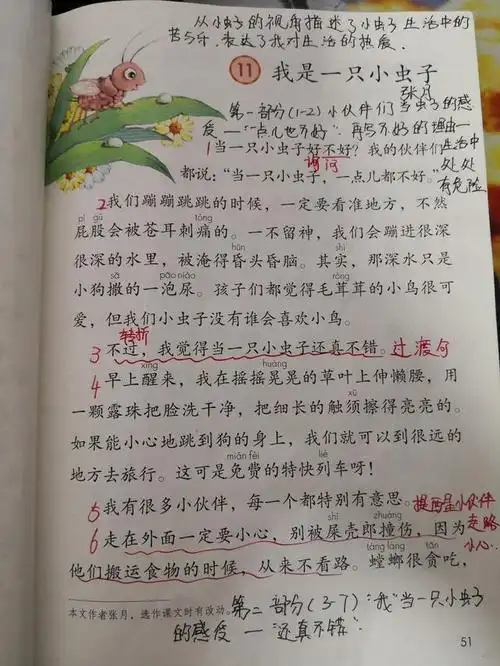 从小虫子的视角描述了小虫子生活中的
苦与乐,表达了我对生活的热爱.
11 我是一只小虫子
张月
第一部分(1-2)小伙伴们当虫子的感
受—“一点儿也不好”.再写不好的理由—
生活中
处处
有危险
1当一只小虫子好不好?我的伙伴们
设问
都说:“当一只小虫子,一点儿都不好。”
2我们蹦蹦跳跳的时候,一定要看准地方,不然
pì gu tòng
屁股会被苍耳刺痛的。一不留神,我们会蹦进很深
hūn shí
很深的水里,被淹得昏头昏脑。其实,那深水只是
sā pāo niào róng
小狗撒的一泡尿。孩子们都觉得毛茸茸的小鸟很可
爱,但我们小虫子没有谁会喜欢小鸟。
转折
3不过,我觉得当一只小虫子还真不错。过渡句
xǐng huàng
4早上醒来,我在摇摇晃晃的草叶上伸懒腰,用
xū
一颗露珠把脸洗干净,把细长的触须擦得亮亮的。
如果能小心地跳到狗的身上,我们就可以到很远的
miǎn fèi liè
地方去旅行。这可是免费的特快列车呀!
5我有很多小伙伴,每一个都特别有意思。
shǐ zhuàng
6走在外面一定要小心,别被屎壳郎撞伤,因为
走路
小心
táng láng tān
他们搬运食物的时候,从来不看路。螳螂很贪吃,
本文作者张月,选作课文时有改动。
第二部分(3-7):“我”当一只小虫子
的感受—“还真不错”.
51